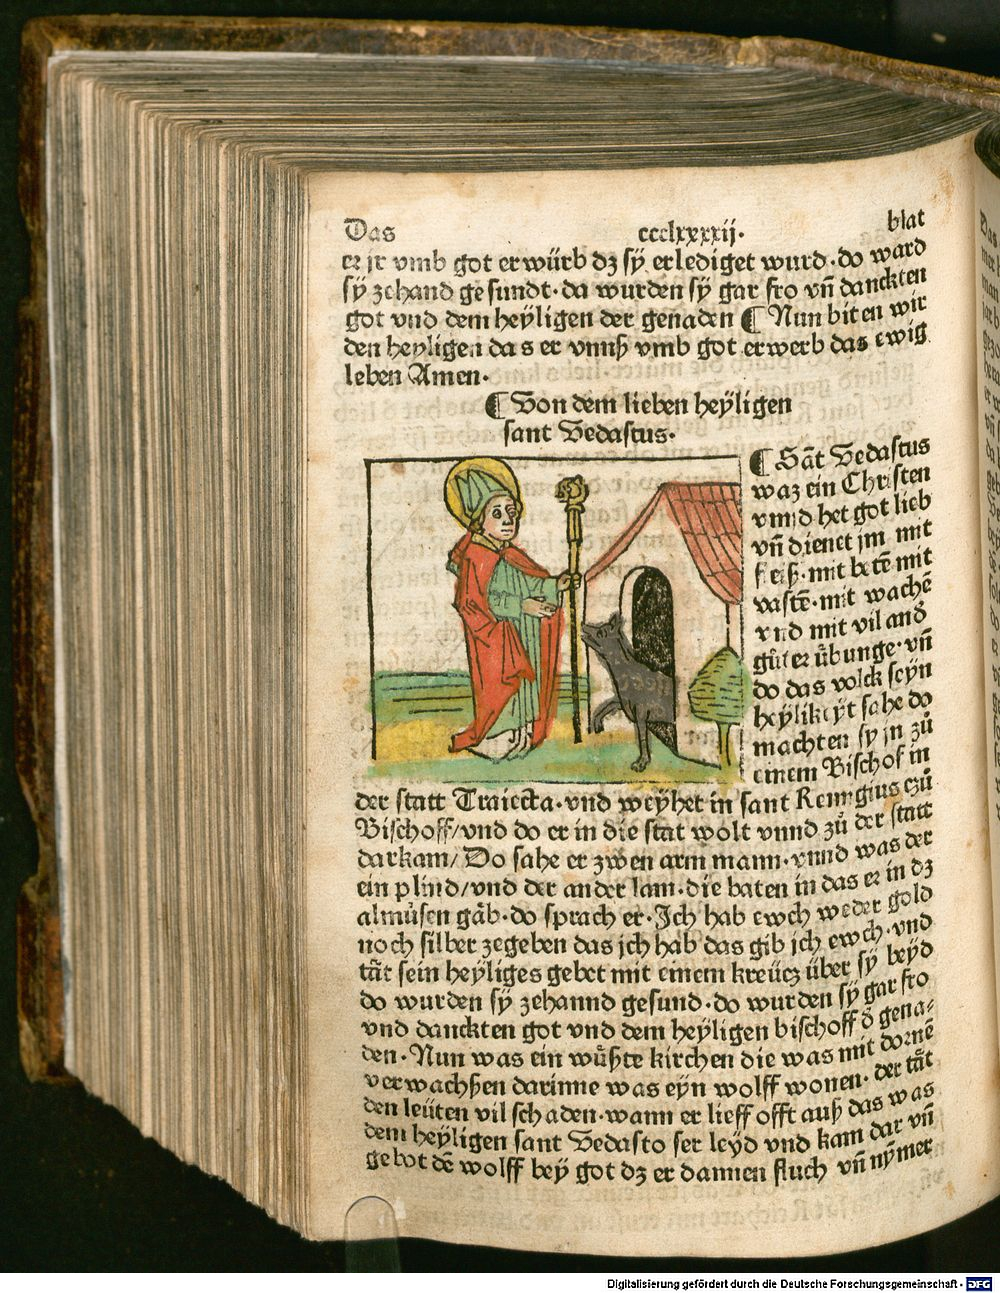 Das ccclxxxxij· blat
er jr vmb got erwürb dz sÿ erlediget wurd·do ward
sÿ zehand gesundt·da wurden sÿ gar fro vñ danckten
got vnd dem heÿligen der genaden ¶ Nun biten wir
den heyligen das er vnnß vmb got erwerb das ewig
leben Amen·
¶ Von dem lieben heÿligen
sant Vedastus·
¶ Sãt Vedastus
waz ein Christen
vnnd het got lieb
vñ dienet jm mit
fleiß·mit betẽ mit
vastẽ·mit wachẽ
vnd mit vil anð
gůter übunge·vñ
do das volck seyn
heÿlikeÿt sahe do
machten sy jn zů
einem Bischof in
der statt Traiecta·vnd weÿhet in sant Remigius czů
Bischoff/vnd do er in die stat wolt vnnd zů der statt
dar kam/Do sahe er zwen arm mann·vnnd was der
ein plind/vnd der ander lam·die baten in das er in dz
almůsen gåb·do sprach er·Jch hab ewch weder gold
noch silber zegeben das jch hab das gib jch ewch·vnd
tåt sein heÿliges gebet mit einem kreücz über sÿ beÿd
do wurden sÿ zehannd gesund·do wurden sÿ gar fro
vnd danckten got vnd dem heÿligen bischoff ð gena⸗
den·Nun was ein wůßte kirchen die was mit dornẽ
verwachßen darinne was eÿn wolff wonen·der tåt
den leüten vil schaden·wann er lieff offt auß das was
dem heÿligen sant Vedasto ser leÿd vnd kam dar vñ
gebot dẽ wolff beÿ got dz er dannen fluch vñ nÿmer
Digitalisierung gefördert durch die Deutsche Forschungsgemeinschaft - DFG